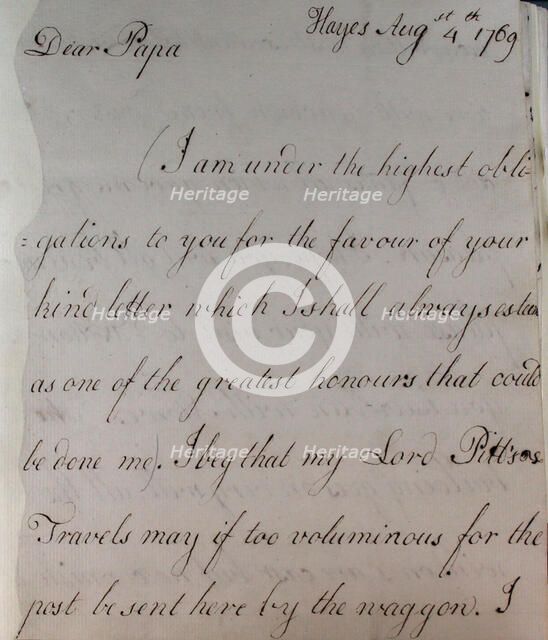 Hayes Augst 4th 1769
Dear Papa
(I am under the highest obli-
=gations to you for the favour of your
kind letter which I shall always esteem
as one of the greatest honours that could
be done me). I beg that my Lord Pitt's
Travels may if too voluminous for the
post be sent here by the waggon. I
Heritage Heritage
Heritage Heritage
Heritage Heritage
©